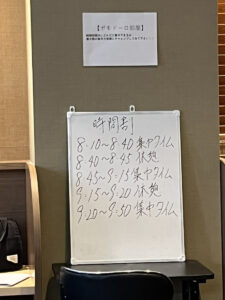 【ポモドーロ部屋】
時間割
8:10～8:40 集中タイム
8:40～8:45 休憩
8:45～9:15 集中タイム
9:15～9:20 休憩
9:20～9:50 集中タイム